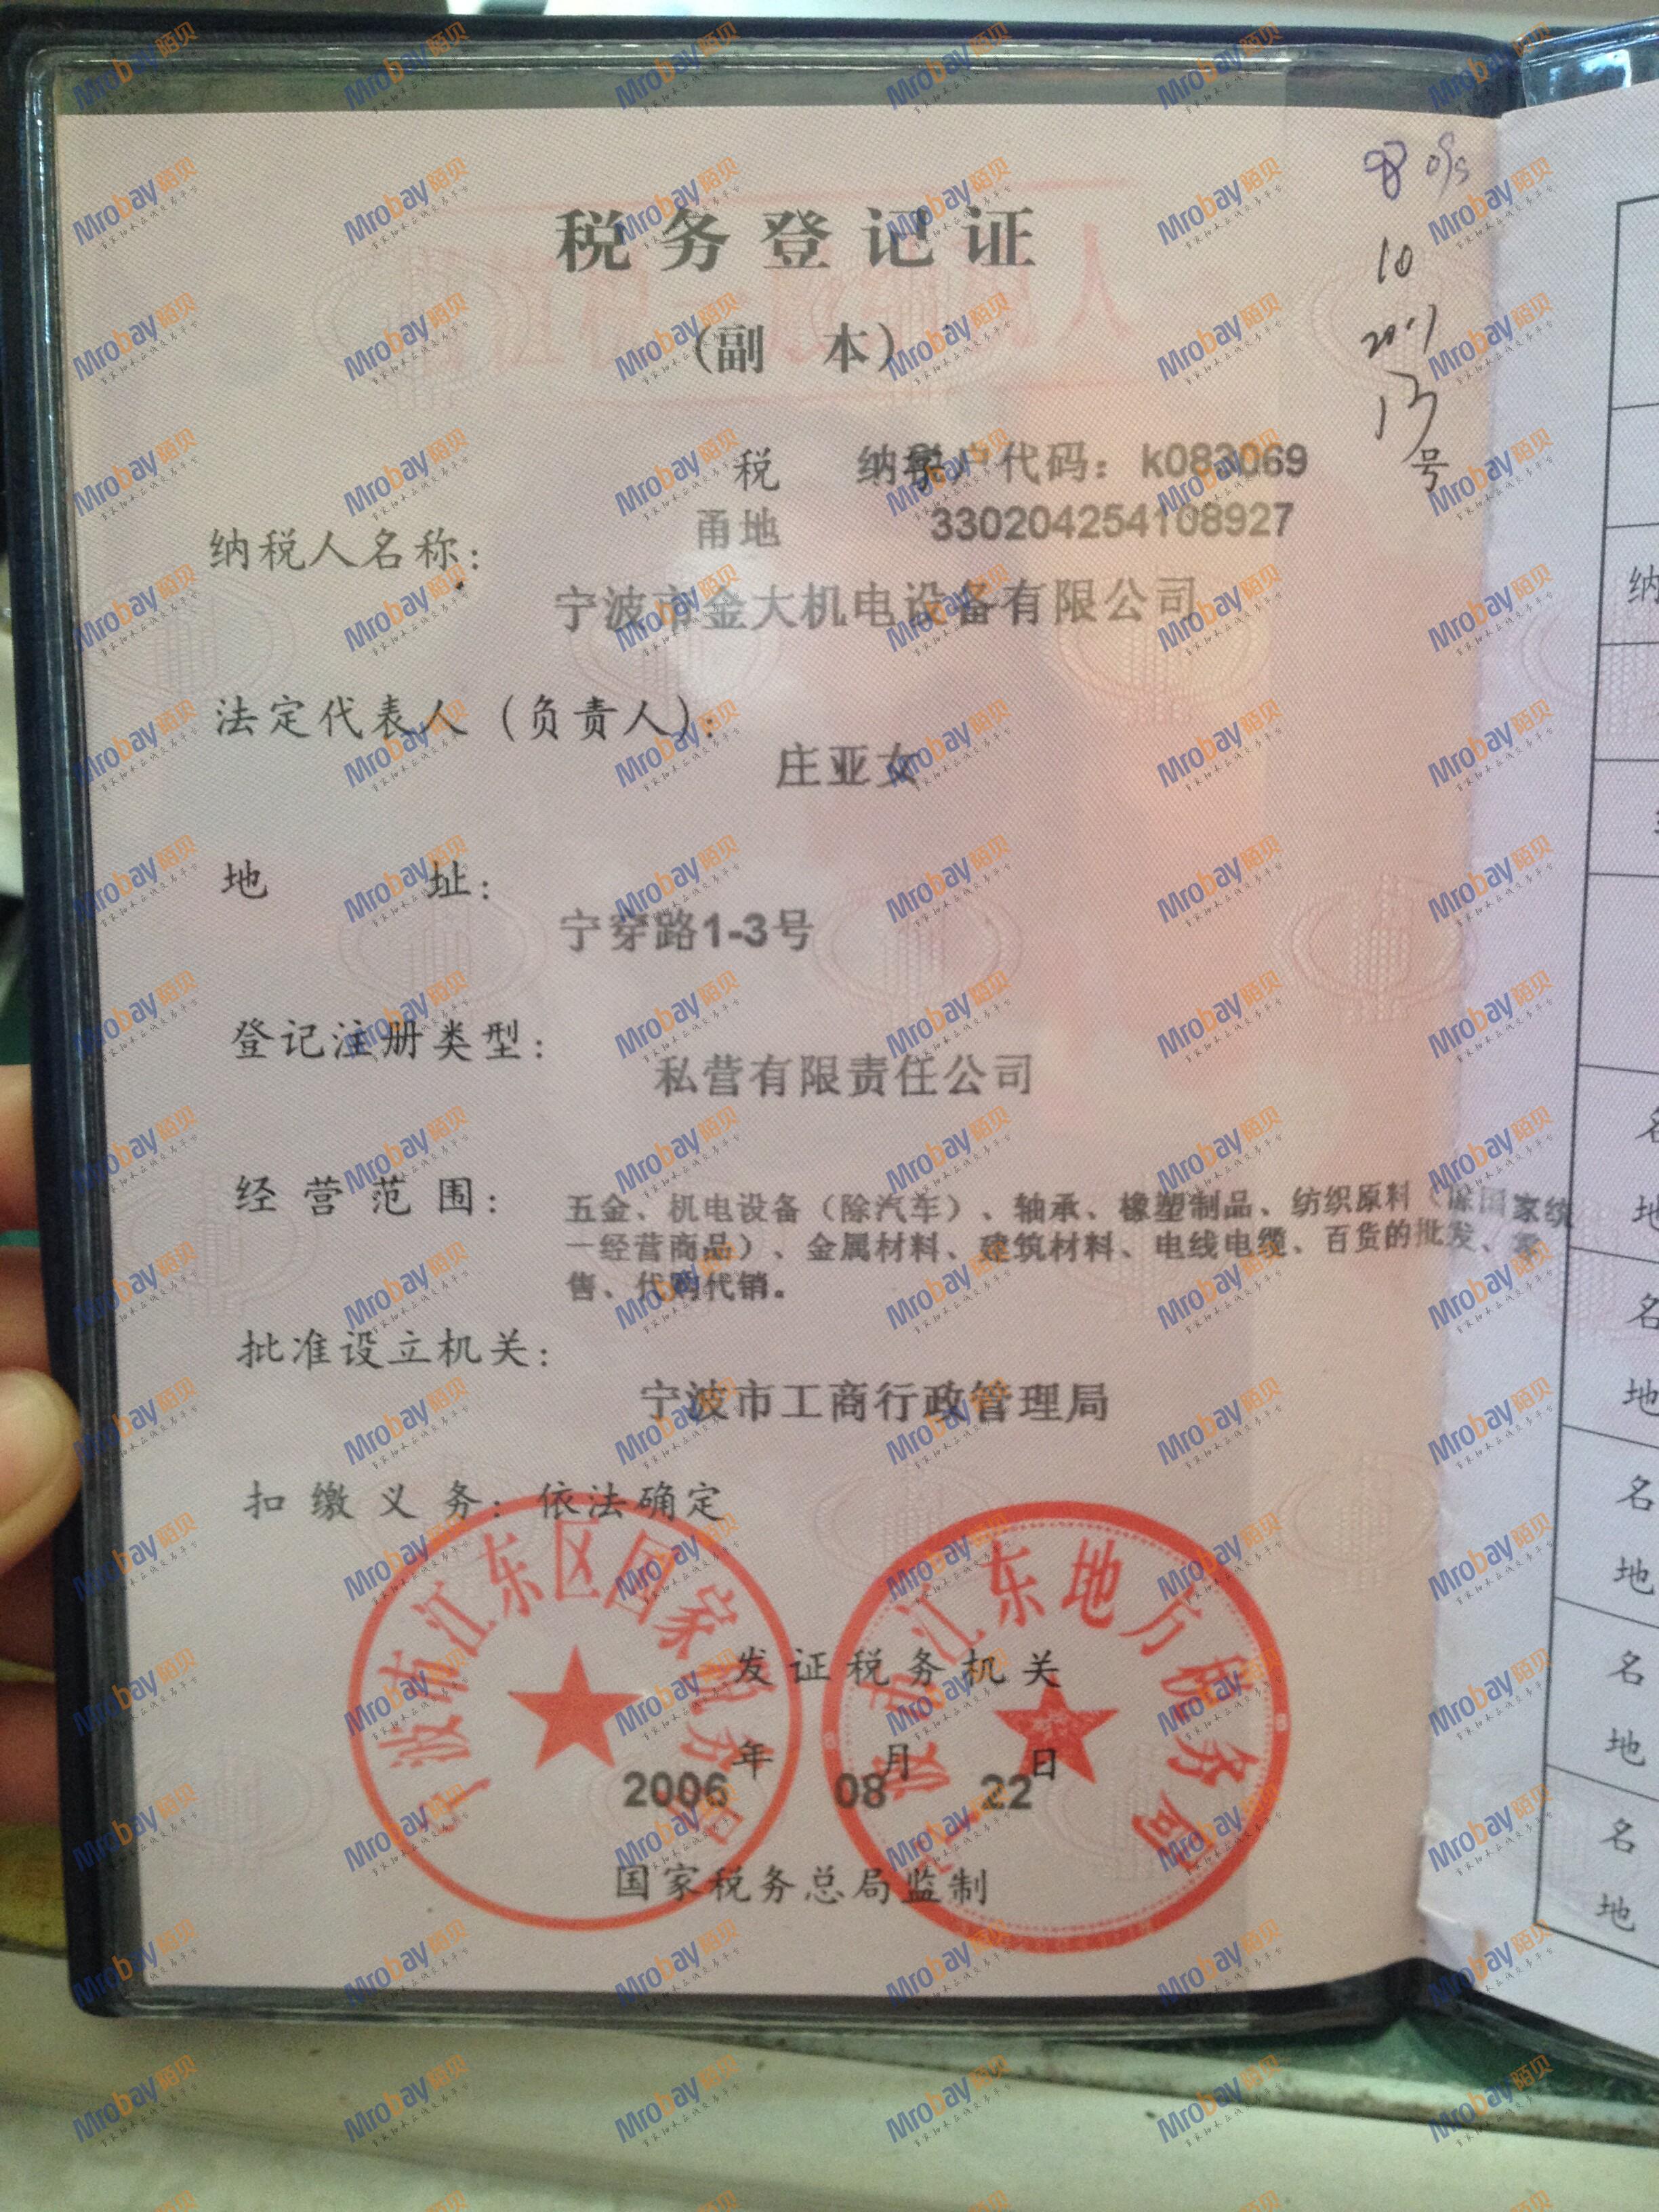 税务登记证
(副 本)
税 纳税户代码：k083069
甬地 330204254108927 号
纳税人名称：
宁波市金大机电设备有限公司
法定代表人（负责人）：
庄亚女
地 址：
宁穿路1-3号
登记注册类型：
私营有限责任公司
经营范围：
五金、机电设备（除汽车）、轴承、橡塑制品、纺织原料（除国家统
一经营商品）、金属材料、建筑材料、电线电缆、百货的批发、零
售、代购代销。
批准设立机关：
宁波市工商行政管理局
扣缴义务：依法确定
宁波市江东区国家税务局
宁波市江东地方税务局
发证税务机关
2006年 08月 22日
国家税务总局监制
10
纳
名
地
名
地
名
地
名
地
名
地
Mrobay陌贝